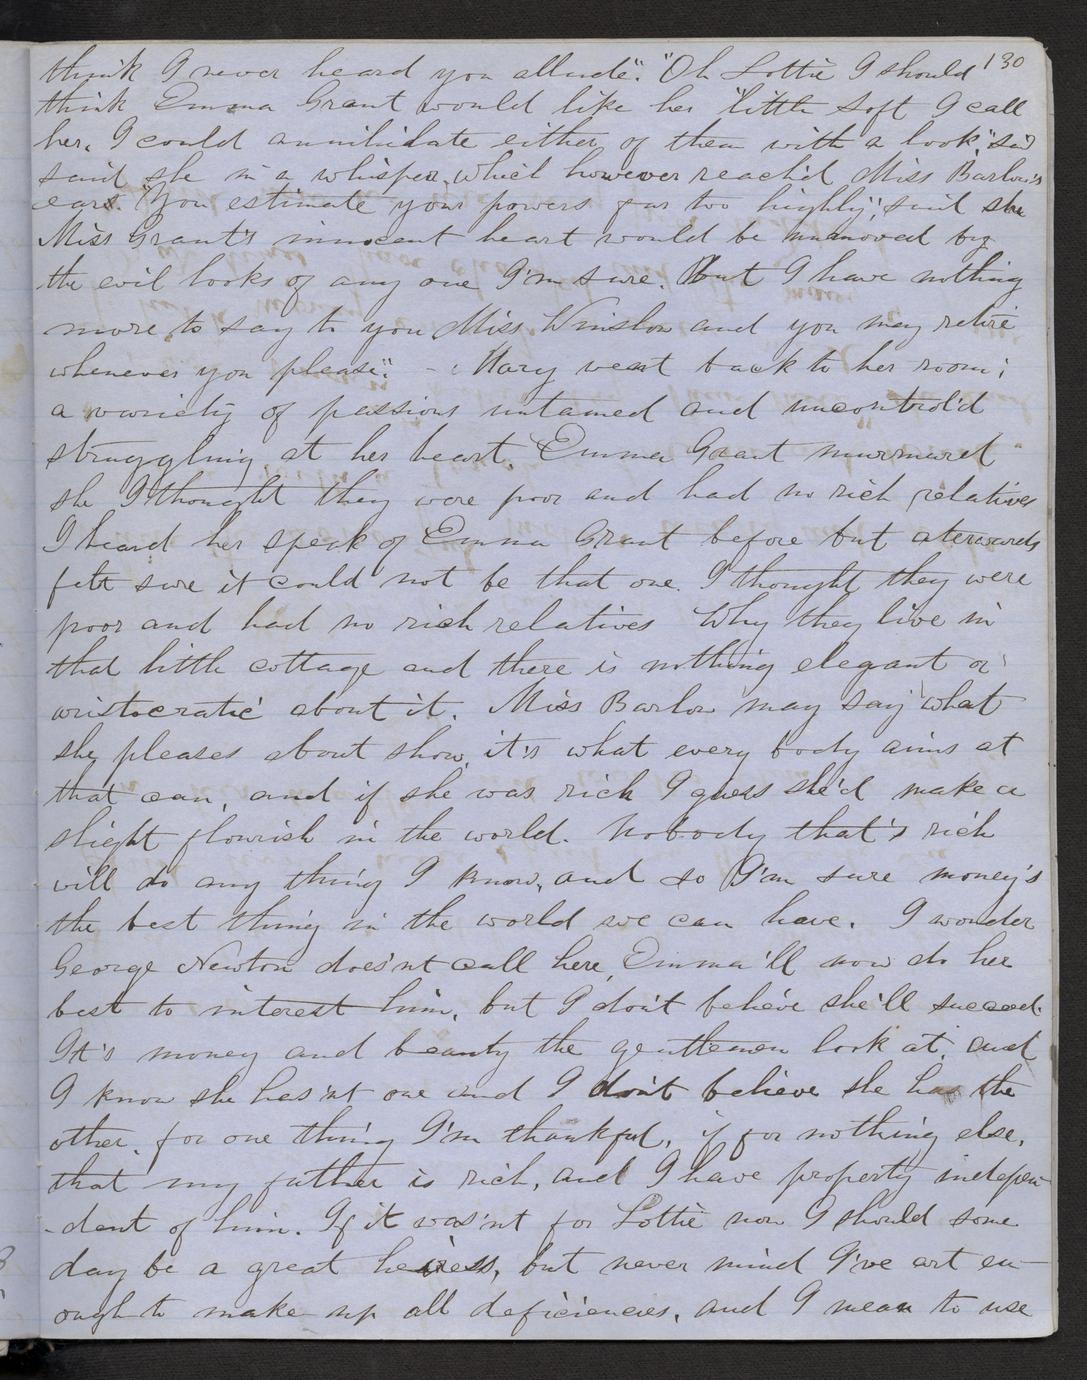 130
think I never heard you allude". "Oh Lottie I should
think Emma Grant would like her "little soft I call
her, I could annilidate either of them with a look," said
said she in a whisper, which however reach'd Miss Barlow's
ears. "You estimate your powers far too highly", said she
Miss Grant's innocent heart would be unmoved by
the evil looks of any one I'm sure. But I have nothing
more to say to you Miss Winslow and you may retire
whenever you please". - Mary went back to her room;
a variety of passions untamed and uncontrol'd
struggling at her heart. Emma Grant murmured
she I thought they were poor and had no rich relatives
I heard her speak of Emma Grant before but aterwards
felt sure it could not be that one. I thought they were
poor and had no rich relatives Why they live in
that little cottage and there is nothing elegant or
aristocratic about it. Miss Barlow may say what
she pleases about show, it's what every body aims at
that can, and if she was rich I guess she'd make a
slight flourish in the world. Nobody that's rich
will do any thing I know, and so I'm sure money's
the best thing in the world we can have. I wonder
George Newton does'nt call here, Emma'll now do her
best to interest him, but I don't believe she'll succeed.
It's money and beauty the gentlemen look at, and
I know she has'nt one and I don't believe she has the
other, for one thing I'm thankful, if for nothing else,
that my father is rich, and I have property indepen-
-dent of him. If it was'nt for Lottie now I should some
day be a great heiress, but never mind I've art en-
ough to make up all deficiencies, and I mean to use